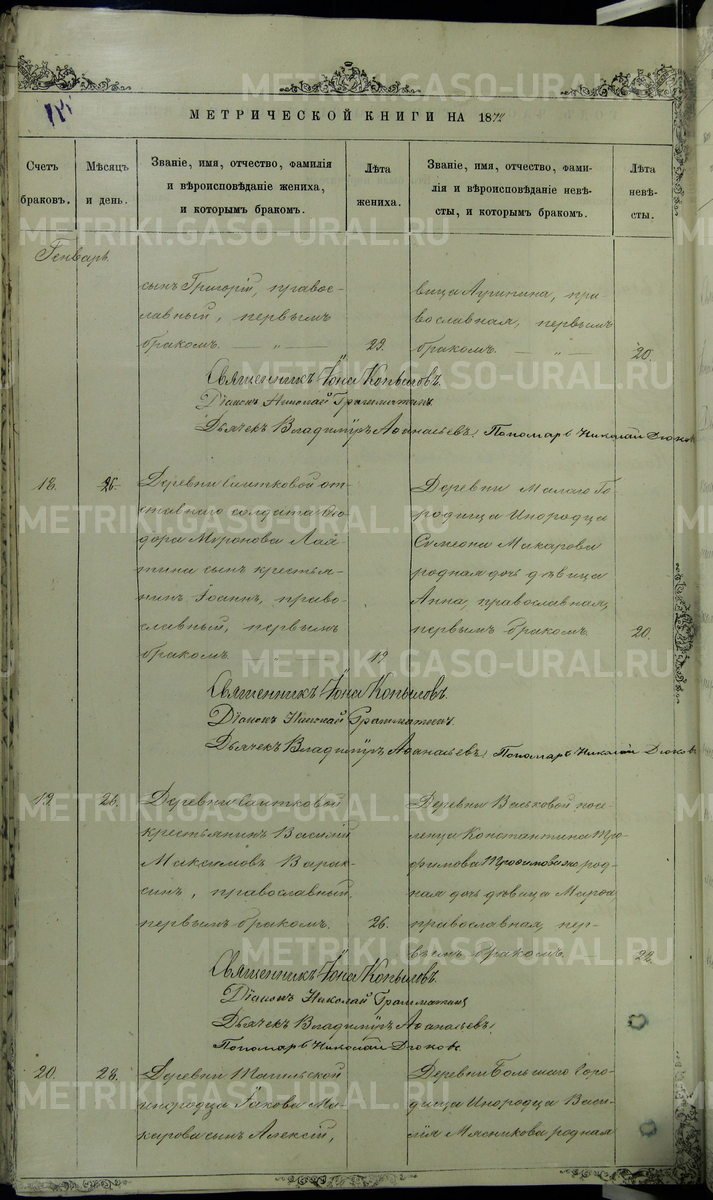 МЕТРИЧЕСКОЙ КНИГИ НА 1872
Счетъ браковъ.
Мѣсяцъ и день.
Званіе, имя, отчество, фамилія
и вѣроисповѣданіе жениха,
и которымъ бракомъ.
Лѣта жениха.
Званіе, имя, отчество, фами-
лія и вѣроисповѣданіе невѣ-
сты, и которымъ бракомъ.
Лѣта невѣ-
сты.
Генварь.
сынъ Григорій, правос-
лавный, первымъ
бракомъ. — „ — 23.
вица Агрипина, пра-
вославная, первымъ
бракомъ. — „ — 20.
Священникъ Іона Копыловъ.
Діаконъ Николай Грамматинъ
Дьячекъ Владимүръ Аѳанасьевъ. Пономарь Николай Дюковъ
18. 26.
Деревни Саитковой от-
ставнаго солдата Ѳео-
дора Миронова Лап-
тина сынъ крестья-
нинъ Іоаннъ, право-
славный, первымъ
бракомъ. 19
Деревни Малаго Го-
родища Инородца
Симеона Макарова
родная дочь дѣвица
Анна, православная,
первымъ бракомъ. 20.
Священникъ Іона Копыловъ.
Діаконъ Николай Грамматинъ
Дьячекъ Владимүръ Аѳанасьевъ. Пономарь Николай Дюковъ
19. 28.
Деревни Саитковой
крестьянинъ Василій
Максимовъ Варак-
синъ, православный,
первымъ бракомъ. 26.
Деревни Васьковой посе-
ленца Константина Тро-
фимова род-
ная дочь дѣвица Марѳа
православная, пер-
вымъ бракомъ. — 22.
Священникъ Іона Копыловъ.
Діаконъ Николай Грамматинъ
Дьячекъ Владимүръ Аѳанасьевъ.
Пономарь Николай Дюковъ
20. 28.
Деревни Тагильской
инородца Іакова Ма-
карова сынъ Алексій,
Деревни Большаго Горо-
дища Инородца Васи-
лія Мясникова родная
METRIKI.GASO-URAL.RU